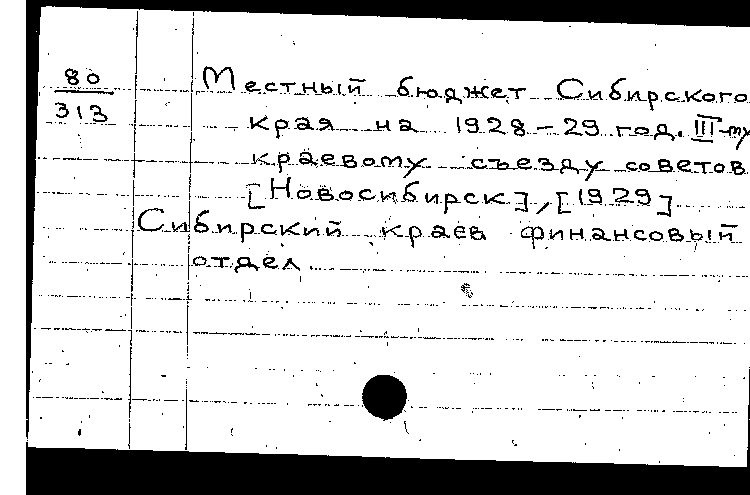 80
313
Местный бюджет Сибирского
края на 1928-29 год. III-му
краевому съезду советов
[Новосибирск], [1929]
Сибирский краев финансовый
отдел.